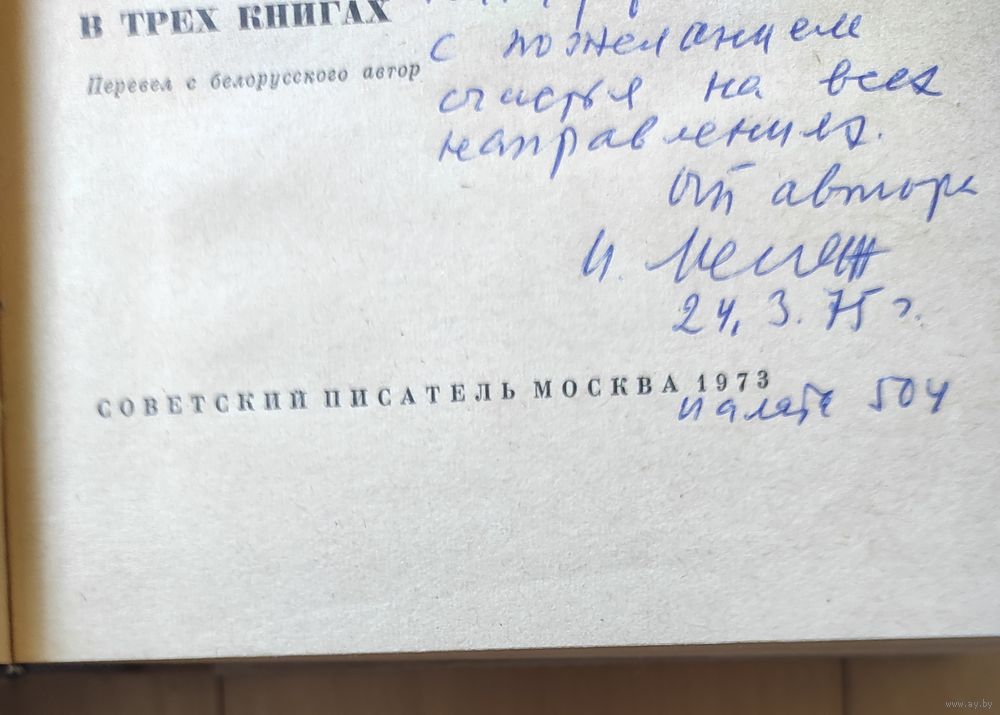 В ТРЕХ КНИГАХ
Перевел с белорусского автор
с пожеланием
счастья на всех
направлениях.
От автора
И. Мележ
24.3.75 г.
СОВЕТСКИЙ ПИСАТЕЛЬ МОСКВА 1973
палата 504
www.ay.by